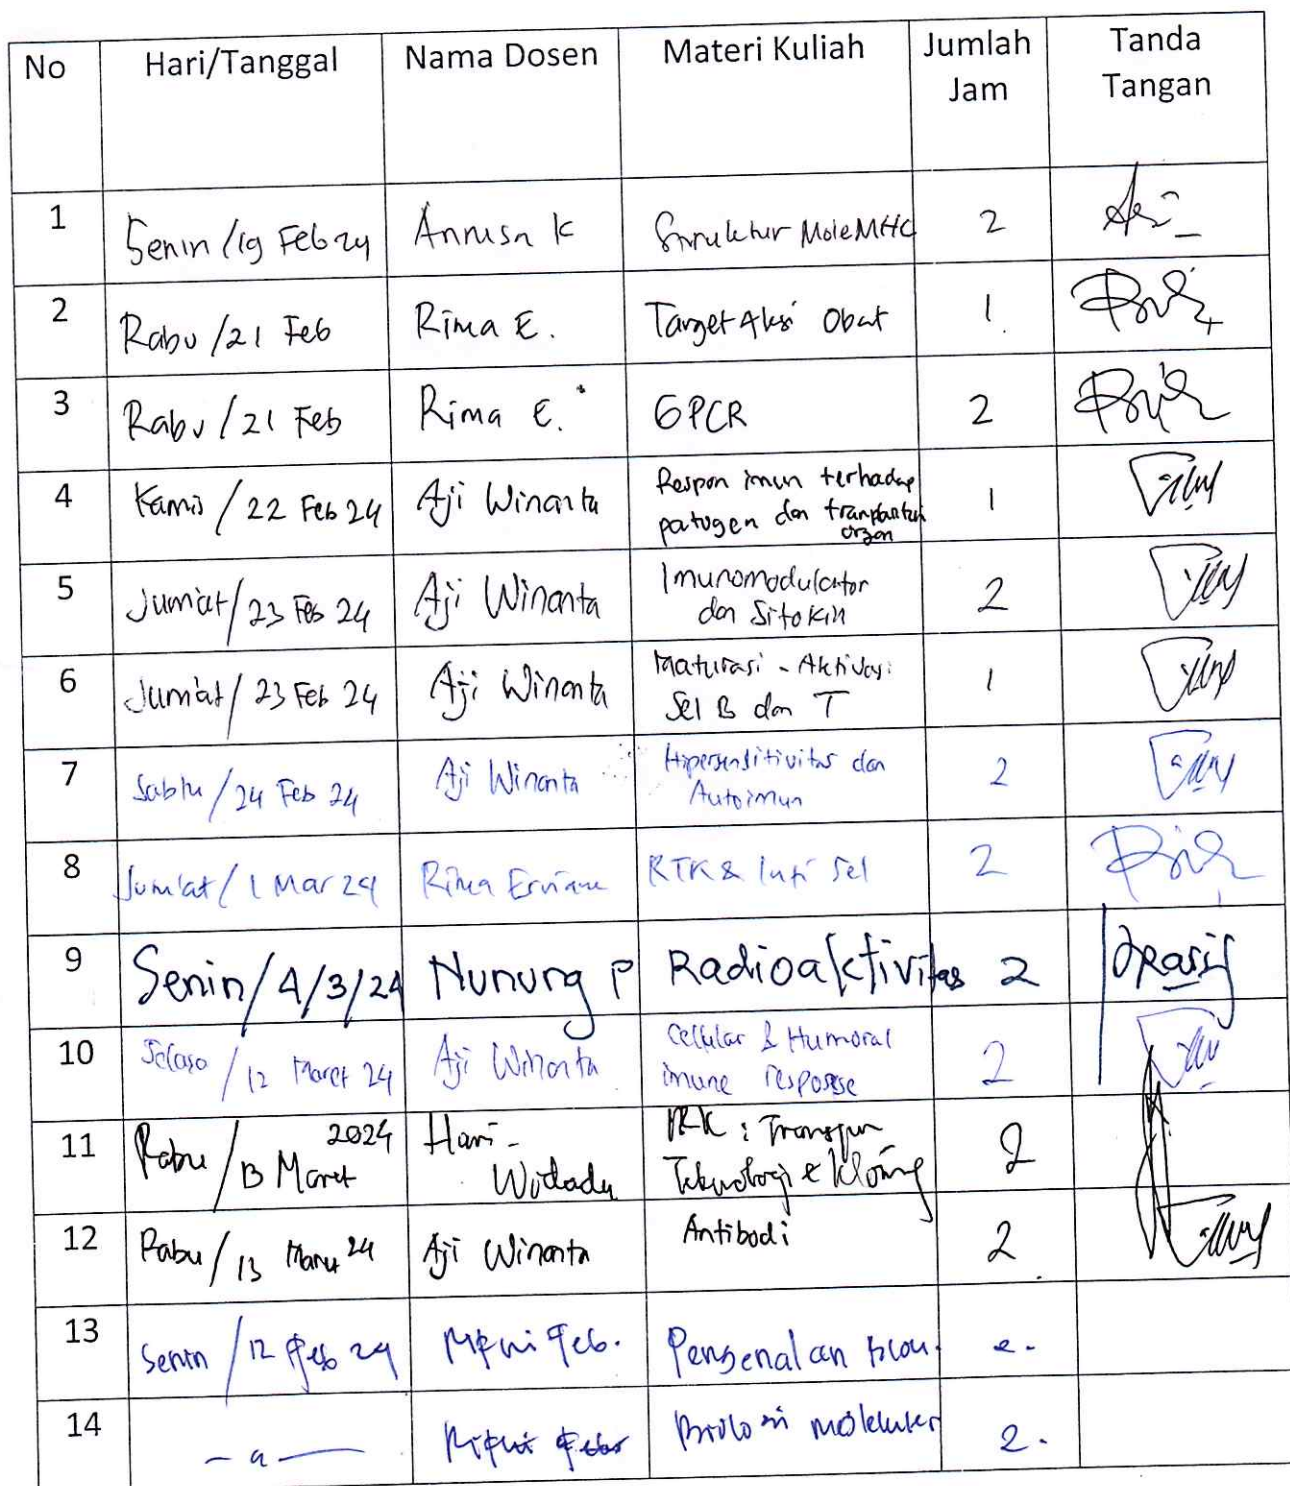 No Hari/Tanggal Nama Dosen Materi Kuliah Jumlah Jam Tanda Tangan
1 Senin /19 Feb 24 Annisa K Struktur Mole MHC 2
2 Rabu /21 Feb Rima E. Target Aksi Obat 1
3 Rabu /21 Feb Rima E. GPCR 2
4 Kamis / 22 Feb 24 Aji Winanta Respon imun terhadap 1
patogen dan
organ
5 Jumat / 23 Feb 24 Aji Winanta Imunomodulator 2
dan Sitokin
6 Jumat / 23 Feb 24 Aji Winanta Maturasi - Aktivasi 1
Sel B dan T
7 Sabtu / 24 Feb 24 Aji Winanta Hipersensitivitas dan 2
Autoimun
8 Jum'at / 1 Mar 24 Rima Erviana RTK & Inti Sel 2
9 Senin / 4/3/24 Nunung P Radioaktivitas 2
10 Selasa / 12 Maret 24 Aji Winanta Cellular & Humoral 2
imune response
11 Rabu / 13 Maret 2024 Hari Widada : Transfer 2
Teknologi & Kloning
12 Rabu / 13 Maret 24 Aji Winanta Antibodi 2
13 Senin / 12 Feb 24 Pengenalan 2.
14 Biologi molekuler 2.